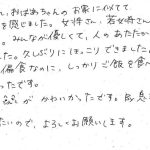 い、おばあちゃんのお家に似てて
を感じました。女将さん、若女将さん
。みんなが優しくて、人のあたたか
した。久しぶりにほっこりできました
偏食なのに、しっかりご飯を食べ
ったです。
がかわいかったです。
たいので、よろしくお願いします。